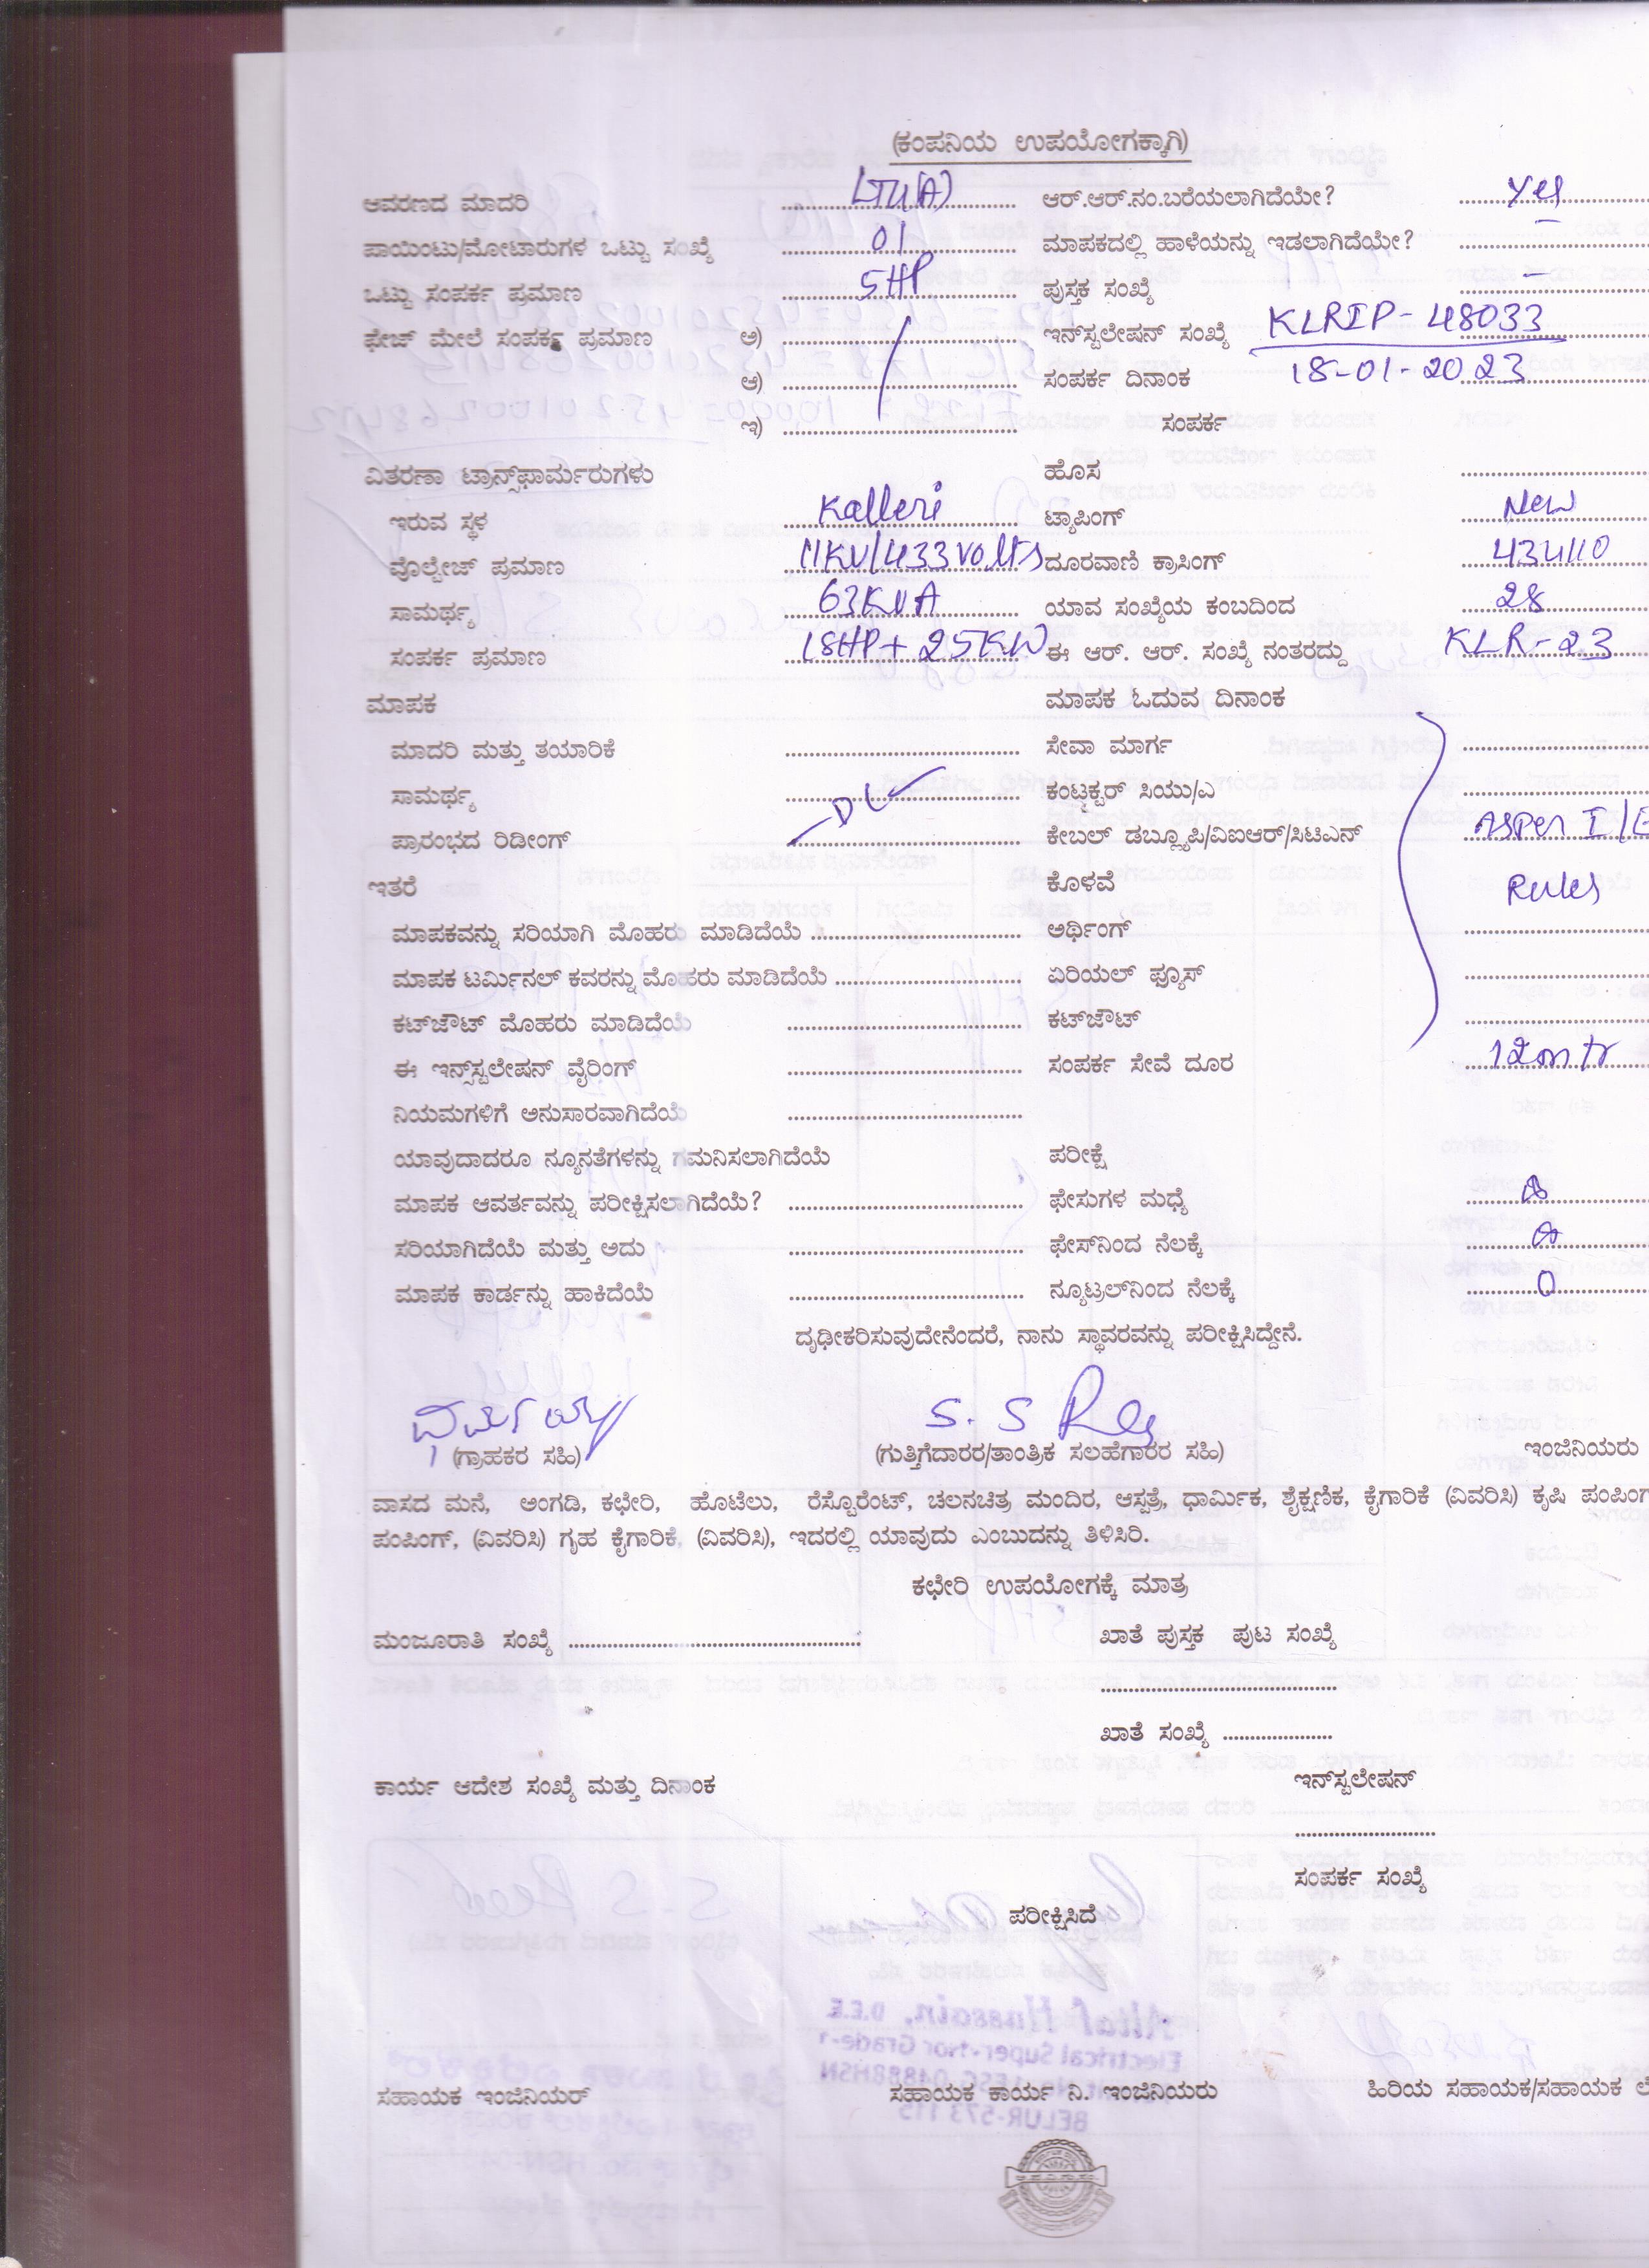 (ಕಂಪನಿಯ ಉಪಯೋಗಕ್ಕಾಗಿ)
ಆವರಣದ ಮಾದರಿ LTU(A) ಆರ್.ಆರ್.ನಂ.ಬರೆಯಲಾಗಿದೆಯೇ? Yes
ಪಾಯಿಂಟು/ಮೋಟಾರುಗಳ ಒಟ್ಟು ಸಂಖ್ಯೆ 01 ಮಾಪಕದಲ್ಲಿ ಹಾಳೆಯನ್ನು ಇಡಲಾಗಿದೆಯೇ? –
ಒಟ್ಟು ಸಂಪರ್ಕ ಪ್ರಮಾಣ 5HP ಪುಸ್ತಕ ಸಂಖ್ಯೆ –
ಫೇಜ್ ಮೇಲೆ ಸಂಪರ್ಕ ಪ್ರಮಾಣ ಅ) ಇನ್‌ಸ್ಟಲೇಷನ್ ಸಂಖ್ಯೆ KLRIP-48033
ಆ) ಸಂಪರ್ಕ ದಿನಾಂಕ 18-01-2023
ಇ) ಸಂಪರ್ಕ
ವಿತರಣಾ ಟ್ರಾನ್ಸ್‌ಫಾರ್ಮರುಗಳು ಹೊಸ
ಇರುವ ಸ್ಥಳ Kalleri ಟ್ಯಾಪಿಂಗ್ New
ವೊಲ್ಟೇಜ್ ಪ್ರಮಾಣ 11KV/433 Volts ದೂರವಾಣಿ ಕ್ರಾಸಿಂಗ್ 434110
ಸಾಮರ್ಥ್ಯ 63KVA ಯಾವ ಸಂಖ್ಯೆಯ ಕಂಬದಿಂದ 28
ಸಂಪರ್ಕ ಪ್ರಮಾಣ 18HP+25KW ಈ ಆರ್. ಆರ್. ಸಂಖ್ಯೆ ನಂತರದ್ದು KLR-23
ಮಾಪಕ ಮಾಪಕ ಓದುವ ದಿನಾಂಕ
ಮಾದರಿ ಮತ್ತು ತಯಾರಿಕೆ ಸೇವಾ ಮಾರ್ಗ
ಸಾಮರ್ಥ್ಯ ಕಂಟ್ರಕ್ಟರ್ ಸಿಯು/ಎ
ಪ್ರಾರಂಭದ ರಿಡೀಂಗ್ ಕೇಬಲ್ ಡಬ್ಲ್ಯೂಪಿ/ವಿಐಆರ್/ಸಿಟಿಎನ್ Asper I/E
ಇತರೆ ಕೊಳವೆ Rules
ಮಾಪಕವನ್ನು ಸರಿಯಾಗಿ ಮೊಹರು ಮಾಡಿದೆಯೆ ಅರ್ಥಿಂಗ್
ಮಾಪಕ ಟರ್ಮಿನಲ್ ಕವರನ್ನು ಮೊಹರು ಮಾಡಿದೆಯೆ ಏರಿಯಲ್ ಫ್ಯೂಸ್
ಕಟ್‌ಜೌಟ್ ಮೊಹರು ಮಾಡಿದೆಯೆ ಕಟ್‌ಜೌಟ್
ಈ ಇನ್ಸ್‌ಸ್ಟಲೇಷನ್ ವೈರಿಂಗ್ ಸಂಪರ್ಕ ಸೇವೆ ದೂರ 12mtr
ನಿಯಮಗಳಿಗೆ ಅನುಸಾರವಾಗಿದೆಯೆ
ಯಾವುದಾದರೂ ನ್ಯೂನತೆಗಳನ್ನು ಗಮನಿಸಲಾಗಿದೆಯೆ ಪರೀಕ್ಷೆ
ಮಾಪಕ ಆವರ್ತವನ್ನು ಪರೀಕ್ಷಿಸಲಾಗಿದೆಯೆ? ಫೇಸುಗಳ ಮಧ್ಯೆ
ಸರಿಯಾಗಿದೆಯೆ ಮತ್ತು ಅದು ಫೇಸ್‌ನಿಂದ ನೆಲಕ್ಕೆ
ಮಾಪಕ ಕಾರ್ಡನ್ನು ಹಾಕಿದೆಯೆ ನ್ಯೂಟ್ರಲ್‌ನಿಂದ ನೆಲಕ್ಕೆ 0
ದೃಢೀಕರಿಸುವುದೇನೆಂದರೆ, ನಾನು ಸ್ಥಾವರವನ್ನು ಪರೀಕ್ಷಿಸಿದ್ದೇನೆ.
S. S
(ಗ್ರಾಹಕರ ಸಹಿ) (ಗುತ್ತಿಗೆದಾರರ/ತಾಂತ್ರಿಕ ಸಲಹೆಗಾರರ ಸಹಿ) ಇಂಜಿನಿಯರು
ವಾಸದ ಮನೆ, ಅಂಗಡಿ, ಕಛೇರಿ, ಹೊಟೆಲು, ರೆಸ್ಟೊರೆಂಟ್, ಚಲನಚಿತ್ರ ಮಂದಿರ, ಆಸ್ಪತ್ರೆ, ಧಾರ್ಮಿಕ, ಶೈಕ್ಷಣಿಕ, ಕೈಗಾರಿಕೆ (ವಿವರಿಸಿ) ಕೃಷಿ ಪಂಪಿಂಗ
ಪಂಪಿಂಗ್, (ವಿವರಿಸಿ) ಗೃಹ ಕೈಗಾರಿಕೆ, (ವಿವರಿಸಿ), ಇದರಲ್ಲಿ ಯಾವುದು ಎಂಬುದನ್ನು ತಿಳಿಸಿರಿ.
ಕಛೇರಿ ಉಪಯೋಗಕ್ಕೆ ಮಾತ್ರ
ಮಂಜೂರಾತಿ ಸಂಖ್ಯೆ ಖಾತೆ ಪುಸ್ತಕ ಪುಟ ಸಂಖ್ಯೆ
ಖಾತೆ ಸಂಖ್ಯೆ
ಕಾರ್ಯ ಆದೇಶ ಸಂಖ್ಯೆ ಮತ್ತು ದಿನಾಂಕ ಇನ್‌ಸ್ಟಲೇಷನ್
ಸಂಪರ್ಕ ಸಂಖ್ಯೆ
ಪರೀಕ್ಷಿಸಿದೆ
ಸಹಾಯಕ ಇಂಜಿನಿಯರ್ ಸಹಾಯಕ ಕಾರ್ಯ ನಿ. ಇಂಜಿನಿಯರು ಹಿರಿಯ ಸಹಾಯಕ/ಸಹಾಯಕ ಲೆ